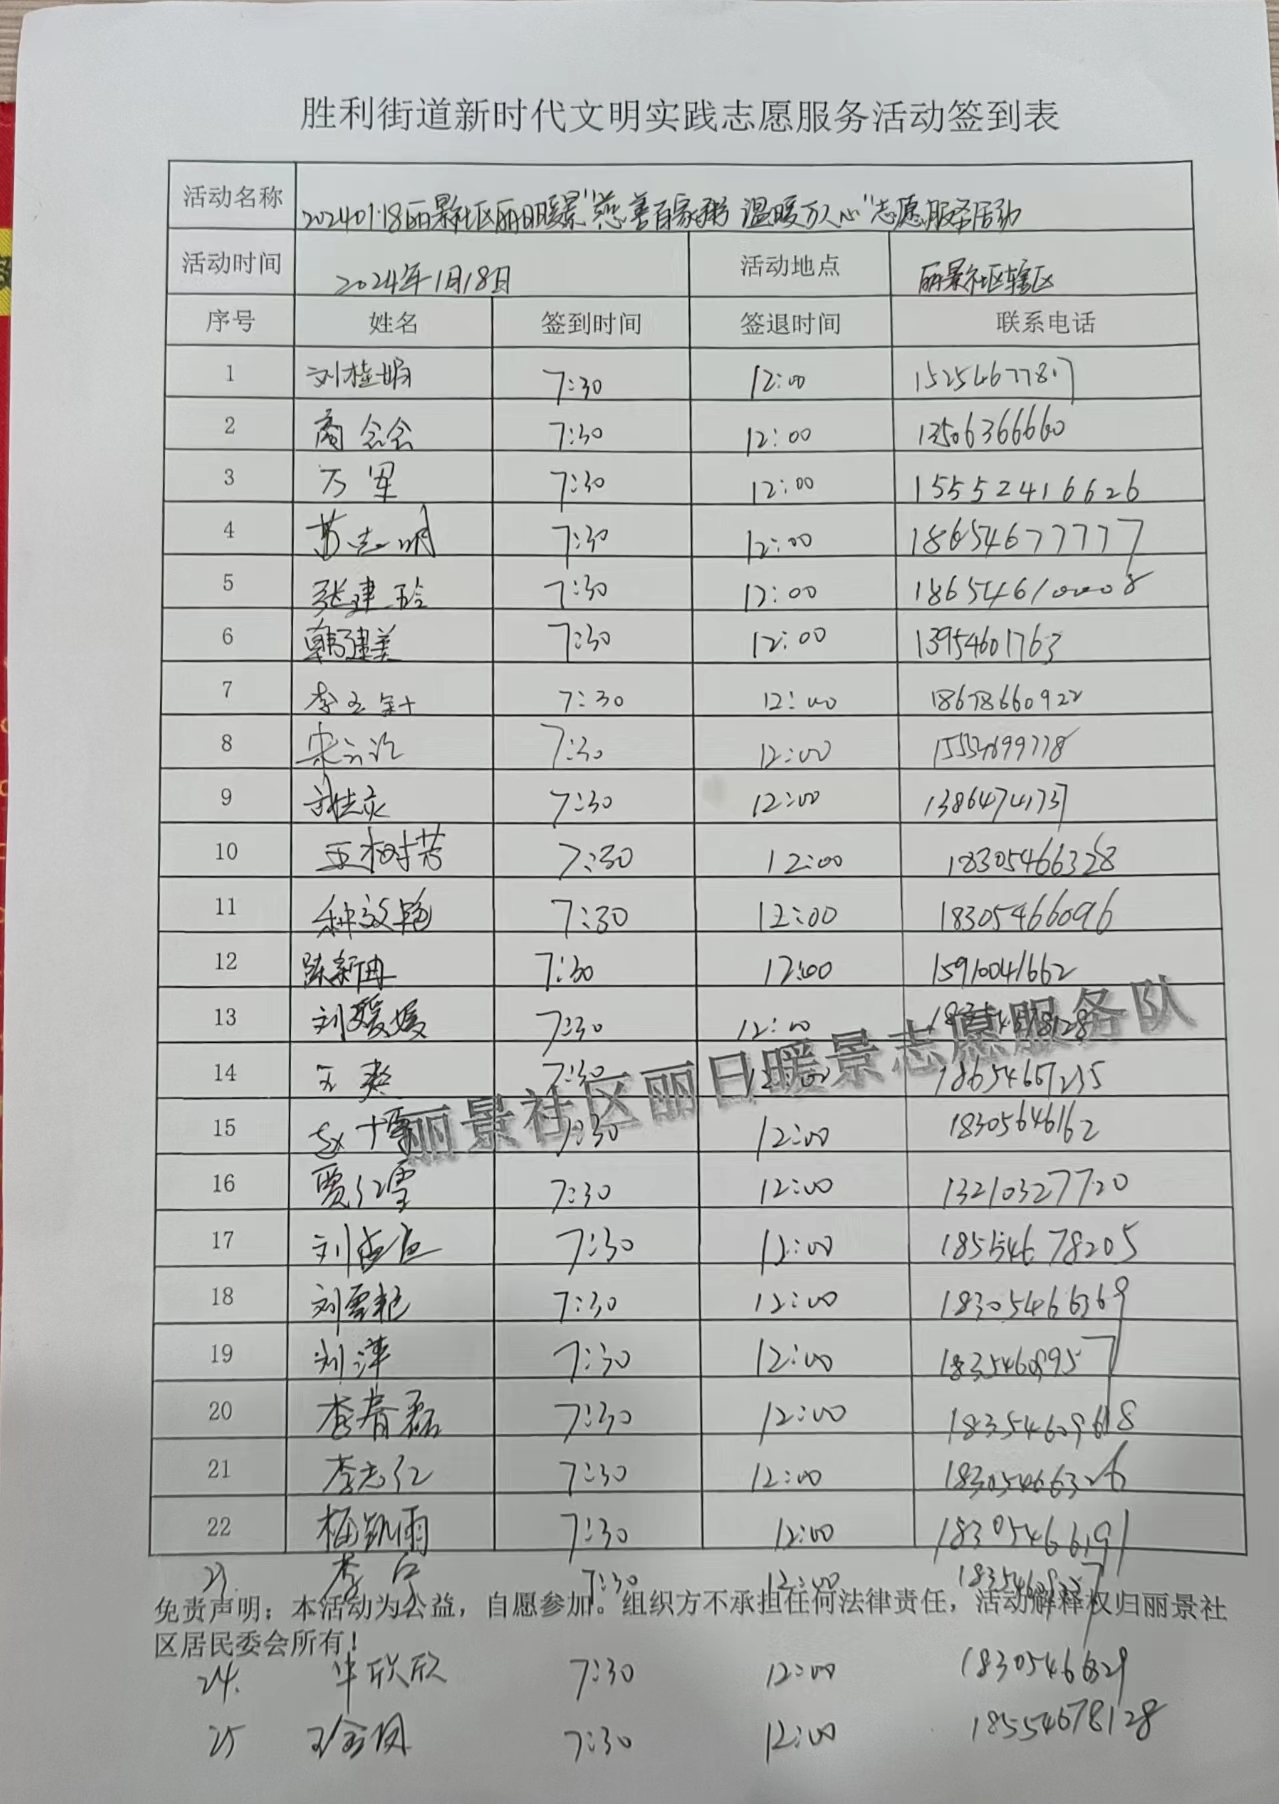 胜利街道新时代文明实践志愿服务活动签到表
活动名称 20240118丽景社区丽日暖景“慈善百家粥 温暖万人心”志愿服务活动
活动时间 2024年1月18日 活动地点 丽景社区辖区
序号 姓名 签到时间 签退时间 联系电话
1 刘桂娟 7:30 12:00
2 商念会 7:30 12:00 13506366660
3 万军 7:30 12:00 15552416626
4 苏志明 7:30 12:00 18654677777
5 张建玲 7:30 12:00
6 韩建美 7:30 12:00 13954601763
7 7:30 12:00 18678660922
8 7:30 12:00
9 7:30 12:00 13864741737
10 王树芳 7:30 12:00 18305466328
11 种效艳 7:30 12:00 18305466096
12 陈新冉 7:30 12:00 15910041662
13 刘媛媛 7:30 12:00
14 7:30 12:00 18654667235
丽景社区丽日暖景志愿服务队
15 7:30 12:00 18305646162
16 贾红雪 7:30 12:00 13210327720
17 刘 7:30 12:00 18554678205
18 刘雪艳 7:30 12:00 18305466369
19 刘萍 7:30 12:00 18354608957
20 李春磊 7:30 12:00 18354609618
21 李志红 7:30 12:00 18305466326
22 梅凯雨 7:30 12:00 18305466191
23. 李宁 7:30 12:00
免责声明：本活动为公益，自愿参加。组织方不承担任何法律责任，活动解释权归丽景社
区居民委会所有！
24. 牟欣欣 7:30 12:00 18305466829
25 王金凤 7:30 12:00 18554678128